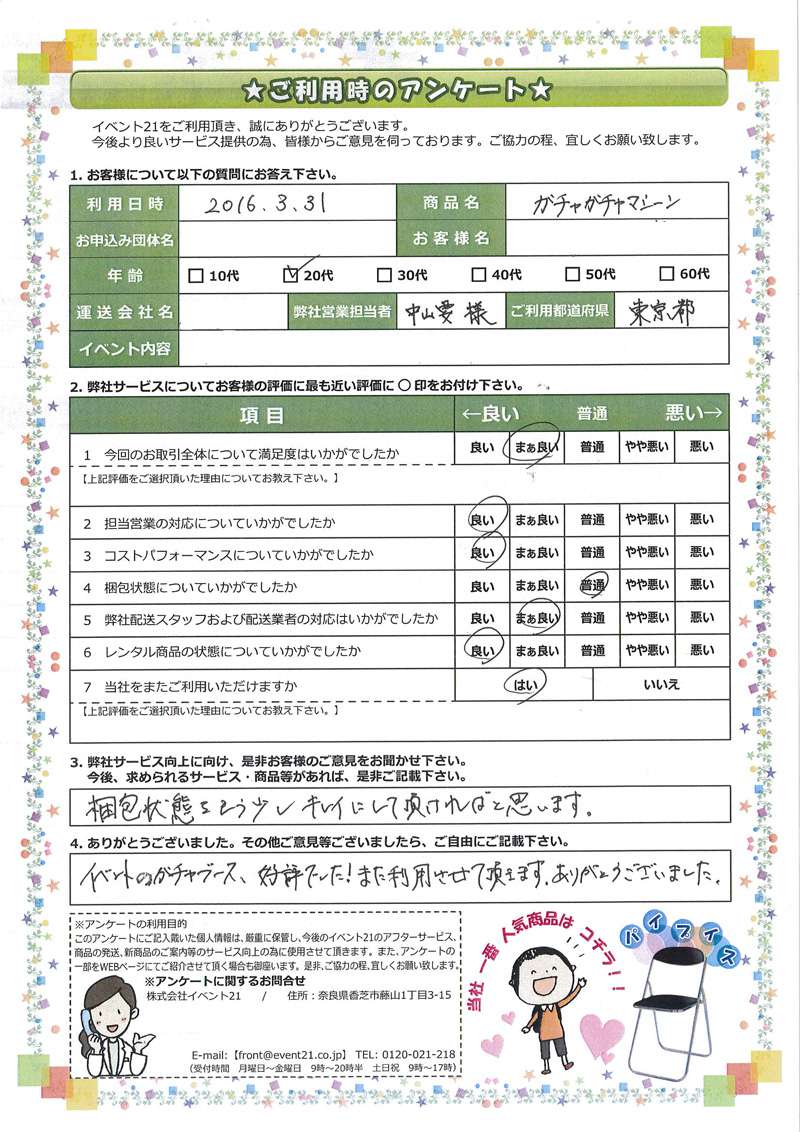 ★ご利用時のアンケート★
イベント21をご利用頂き、誠にありがとうございます。
今後より良いサービス提供の為、皆様からご意見を伺っております。ご協力の程、宜しくお願い致します。
1. お客様について以下の質問にお答え下さい。
利用日時 2016.3.31 商品名 ガチャガチャマシーン
お申込み団体名 お客様名
年齢 10代 20代 30代 40代 50代 60代
運送会社名 弊社営業担当者 中山愛様 ご利用都道府県 東京都
イベント内容
2. 弊社サービスについてお客様の評価に最も近い評価に ○ 印をお付け下さい。
項目 ←良い 普通 悪い→
1 今回のお取引全体について満足度はいかがでしたか 良い まぁ良い 普通 やや悪い 悪い
【上記評価をご選択頂いた理由についてお教え下さい。】
2 担当営業の対応についていかがでしたか 良い まぁ良い 普通 やや悪い 悪い
3 コストパフォーマンスについていかがでしたか 良い まぁ良い 普通 やや悪い 悪い
4 梱包状態についていかがでしたか 良い まぁ良い 普通 やや悪い 悪い
5 弊社配送スタッフおよび配送業者の対応はいかがでしたか 良い まぁ良い 普通 やや悪い 悪い
6 レンタル商品の状態についていかがでしたか 良い まぁ良い 普通 やや悪い 悪い
7 当社をまたご利用いただけますか はい いいえ
【上記評価をご選択頂いた理由についてお教え下さい。】
3. 弊社サービス向上に向け、是非お客様のご意見をお聞かせ下さい。
今後、求められるサービス・商品等があれば、是非ご記載下さい。
梱包状態をもう少しキレイにして頂ければと思います。
4. ありがとうございました。その他ご意見等ございましたら、ご自由にご記載下さい。
イベントのガチャブース、好評でした!また利用させて頂きます。ありがとうございました。
※アンケートの利用目的
このアンケートにご記入戴いた個人情報は、厳重に保管し、今後のイベント21のアフターサービス、
商品の発送、新商品のご案内等のサービス向上の為に使用させて頂きます。また、アンケートの
一部をWEBページにてご紹介させて頂く場合も御座います。是非、ご協力の程、宜しくお願い致します。
※アンケートに関するお問合せ
株式会社イベント21 / 住所:奈良県香芝市藤山1丁目3-15
E-mail:【front@event21.co.jp】 TEL: 0120-021-218
(受付時間 月曜日~金曜日 9時~20時半 土日祝 9時~17時)
当社一番人気商品はコチラ!!
パイプイス